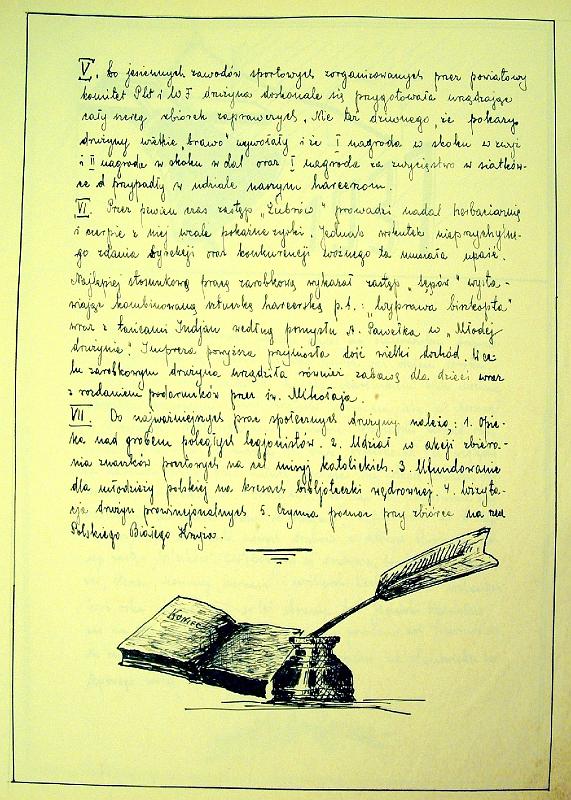 V. Do jesiennych zawodów sportowych zorganizowanych przez powiatowy
komitet PW i WF drużyna doskonale się przygotowała urządzając
cały szereg zbiórek zaprawczych. Nic też dziwnego, że pokazy
drużyny wielkie "brawo" wywołały i że I nagroda w skoku w zwyż
i II nagroda w skoku w dal oraz I nagroda za zwycięstwo w siatków-
ce przypadły w udziale naszym harcerzom.
VI. Przez pewien czas zastęp "Żubrów" prowadzi nadal herbaciarnię
i czerpie z niej wcale pokaźne zyski. Jednak wskutek nieprzychylne-
go zdania Dyrekcji oraz konkurencji woźnego ta musiała upaść.
Najlepiej stosunkową pracę zarobkową wykazał zastęp "Lępów" wysta-
wiając kombinowaną sztuczkę harcerską p.t.: "Wyprawa biszkopta"
wraz z tańcami Indjan według pomysłu A. Pawełka w "Młodej
drużynie". Impreza powyższa przyniosła dość wielki dochód. W ce-
lu zarobkowym drużyna urządziła również zabawę dla dzieci wraz
z rozdaniem podarunków przez św. Mikołaja.
VII. Do najważniejszych prac społecznych drużyny należą: 1. Opie-
ka nad grobem poległych legjonistów. 2. Udział w akcji zbiera-
nia znaczków pocztowych na cel misyj katolickich. 3. Ufundowanie
dla młodzieży polskiej na kresach bibljoteczki wędrownej. 4. Wizyta-
cja drużyn prowincjonalnych 5. Czynna pomoc przy zbiórce na rzecz
Polskiego Białego Krzyża.
Koniec